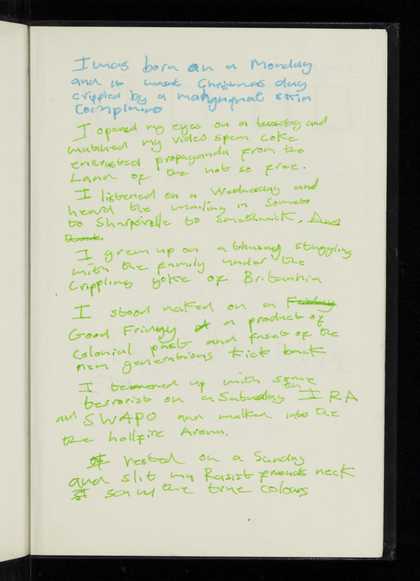 I was born on a Monday
and it wasnt Christmas day
crippled by a marginal skin
Complaint
I opened my eyes on a tuesday and
watched my video spew coke
encrusted propaganda from the
Land of the not so free.
I listened on a Wednesday and
heard the wailing in Soweto
to Sharpeville to Smethwick. And
I grew up on a thursday struggling
with the family under the
Crippling yoke of Britannia
I stood naked on a Friday
Good Friday a product of
Colonial past and facet of the
new generations kick back
I teamed up with some
terrorist on a Saturday IRA
and SWAPO and walked into the
the hellfire Arena.
I rested on a Sunday
and slit my Racist friends neck
I saw the true colours